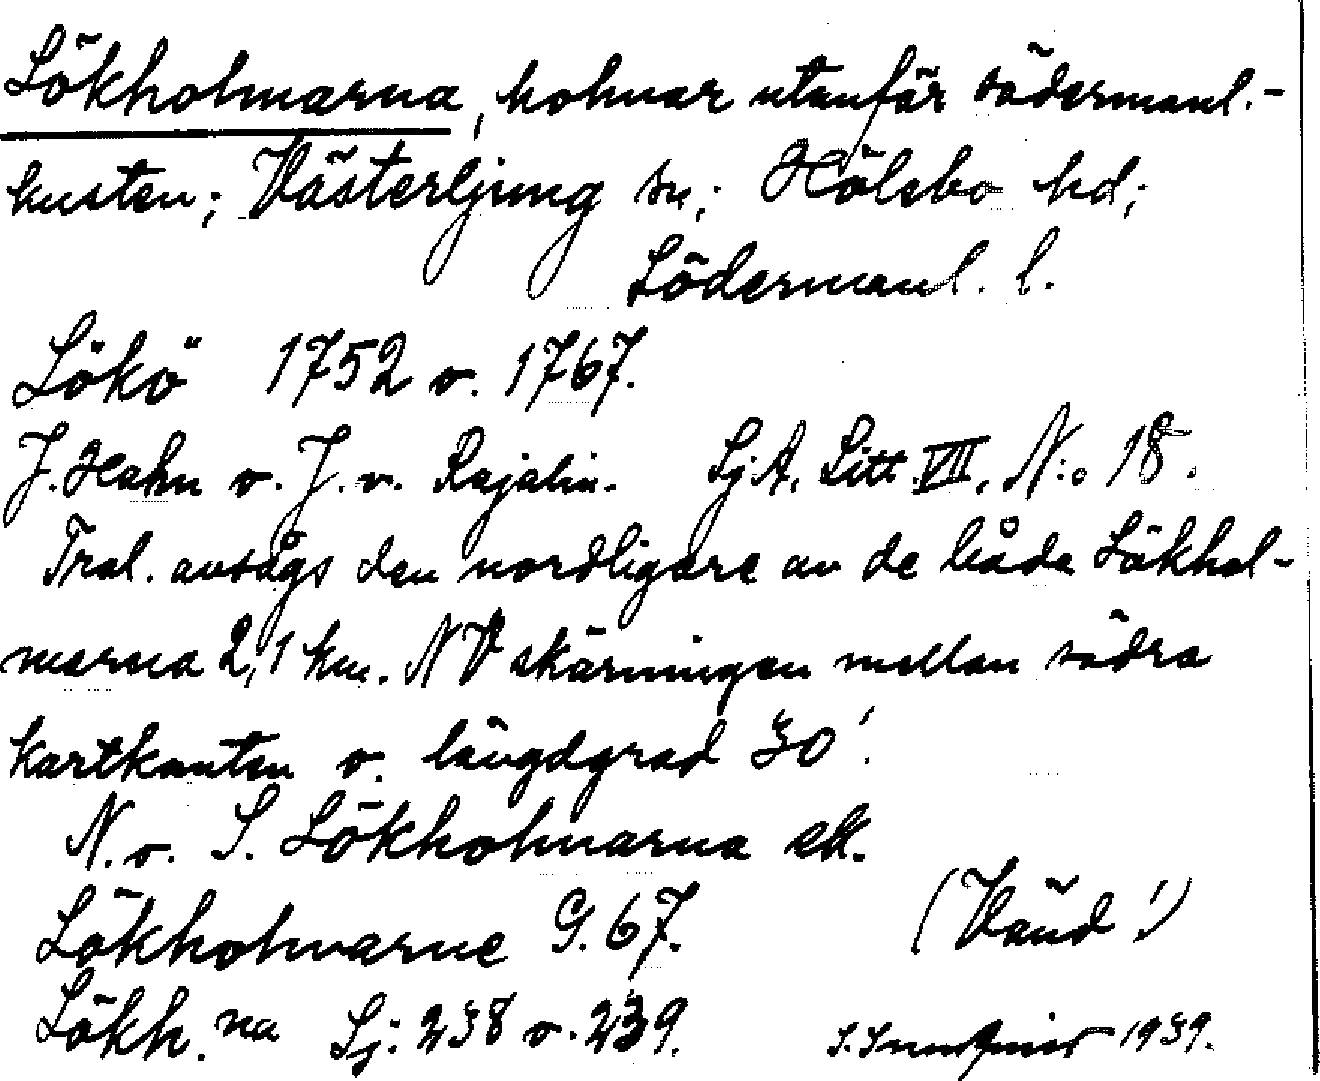 Lökholmarna, holmar utanför södermanl.-
kusten; Västerljung sn; Hölebo hd;
Södermanl. l.
Lökö 1752 o. 1767.
J. Hahn o. J. v. Rajalin. Sj.A. Litt. VII, N:o 18.
Trol. avsågs den nordligare av de båda Lökhol-
marna 2,1 km. NV skärningen mellan södra
kartkanten o. längdgrad 30'.
N. o. S. Lökholmarna ek.
Lökholmarne G. 67. (Vänd!)
Lökh.na Sj: 238 o. 239. 1939.